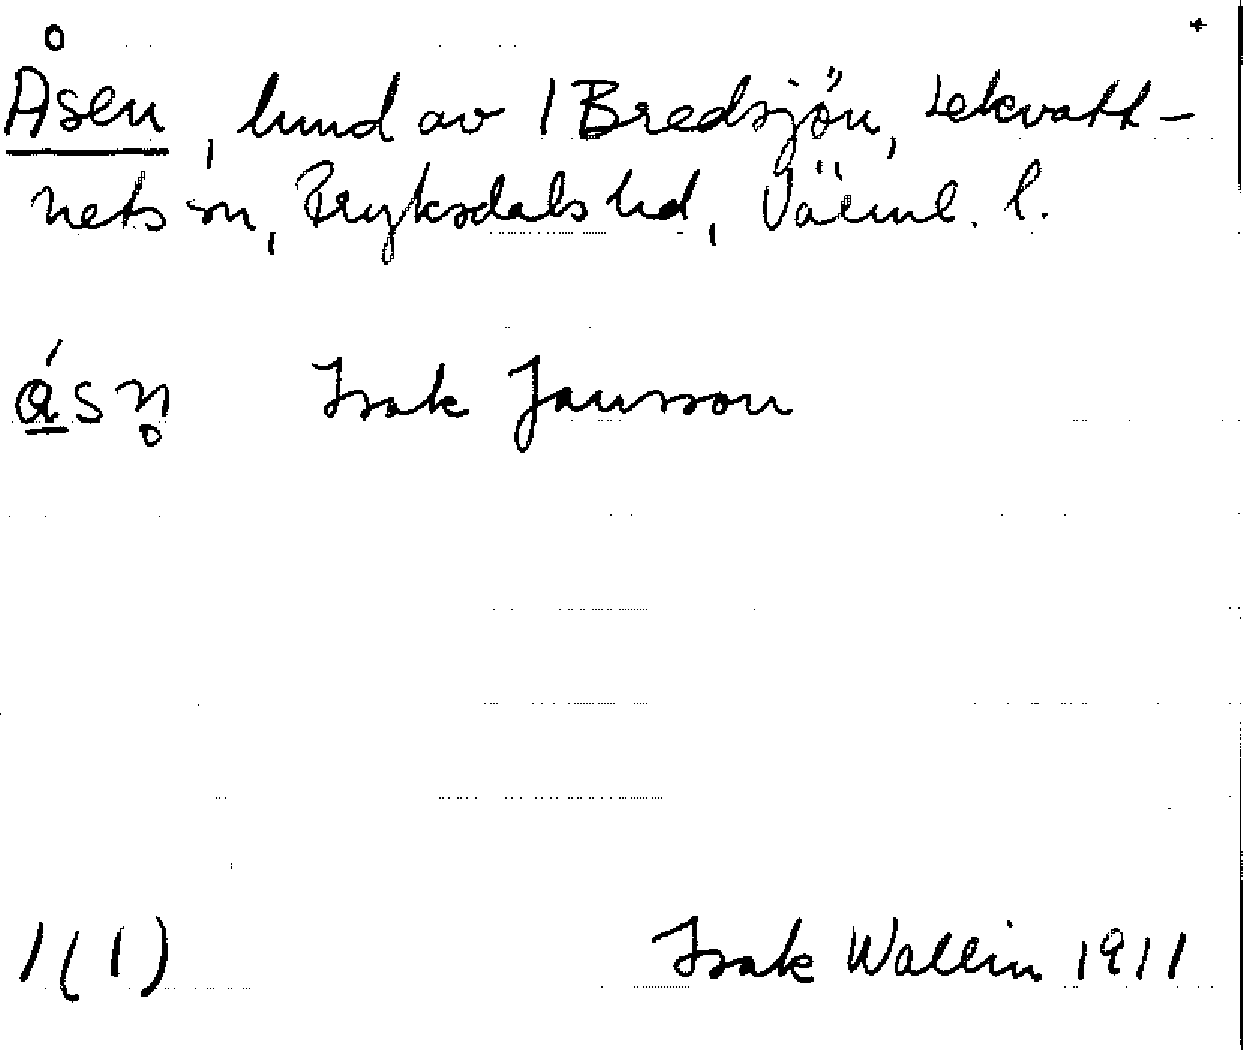 Åsen, hmd av 1 Bredsjön, Lekvatt-
nets sn, Fryksdals hd, Värml. l.
ǻsn̥ Isak Jansson
1(1) Isak Wallin 1911